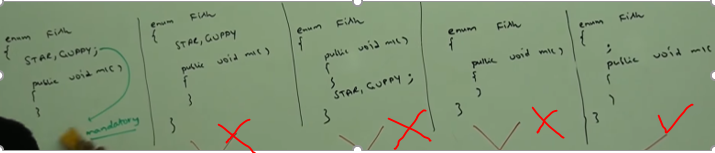 enum Fish
{
STAR, GUPPY;
public void m1()
{
}
mandatory
enum Fish
{
STAR, GUPPY
public void m1()
{
}
}
enum Fish
{
public void m1()
{
}
STAR, GUPPY;
}
enum Fish
{
public void m1()
{
}
}
enum Fish
{
;
public void m1()
{
}
}